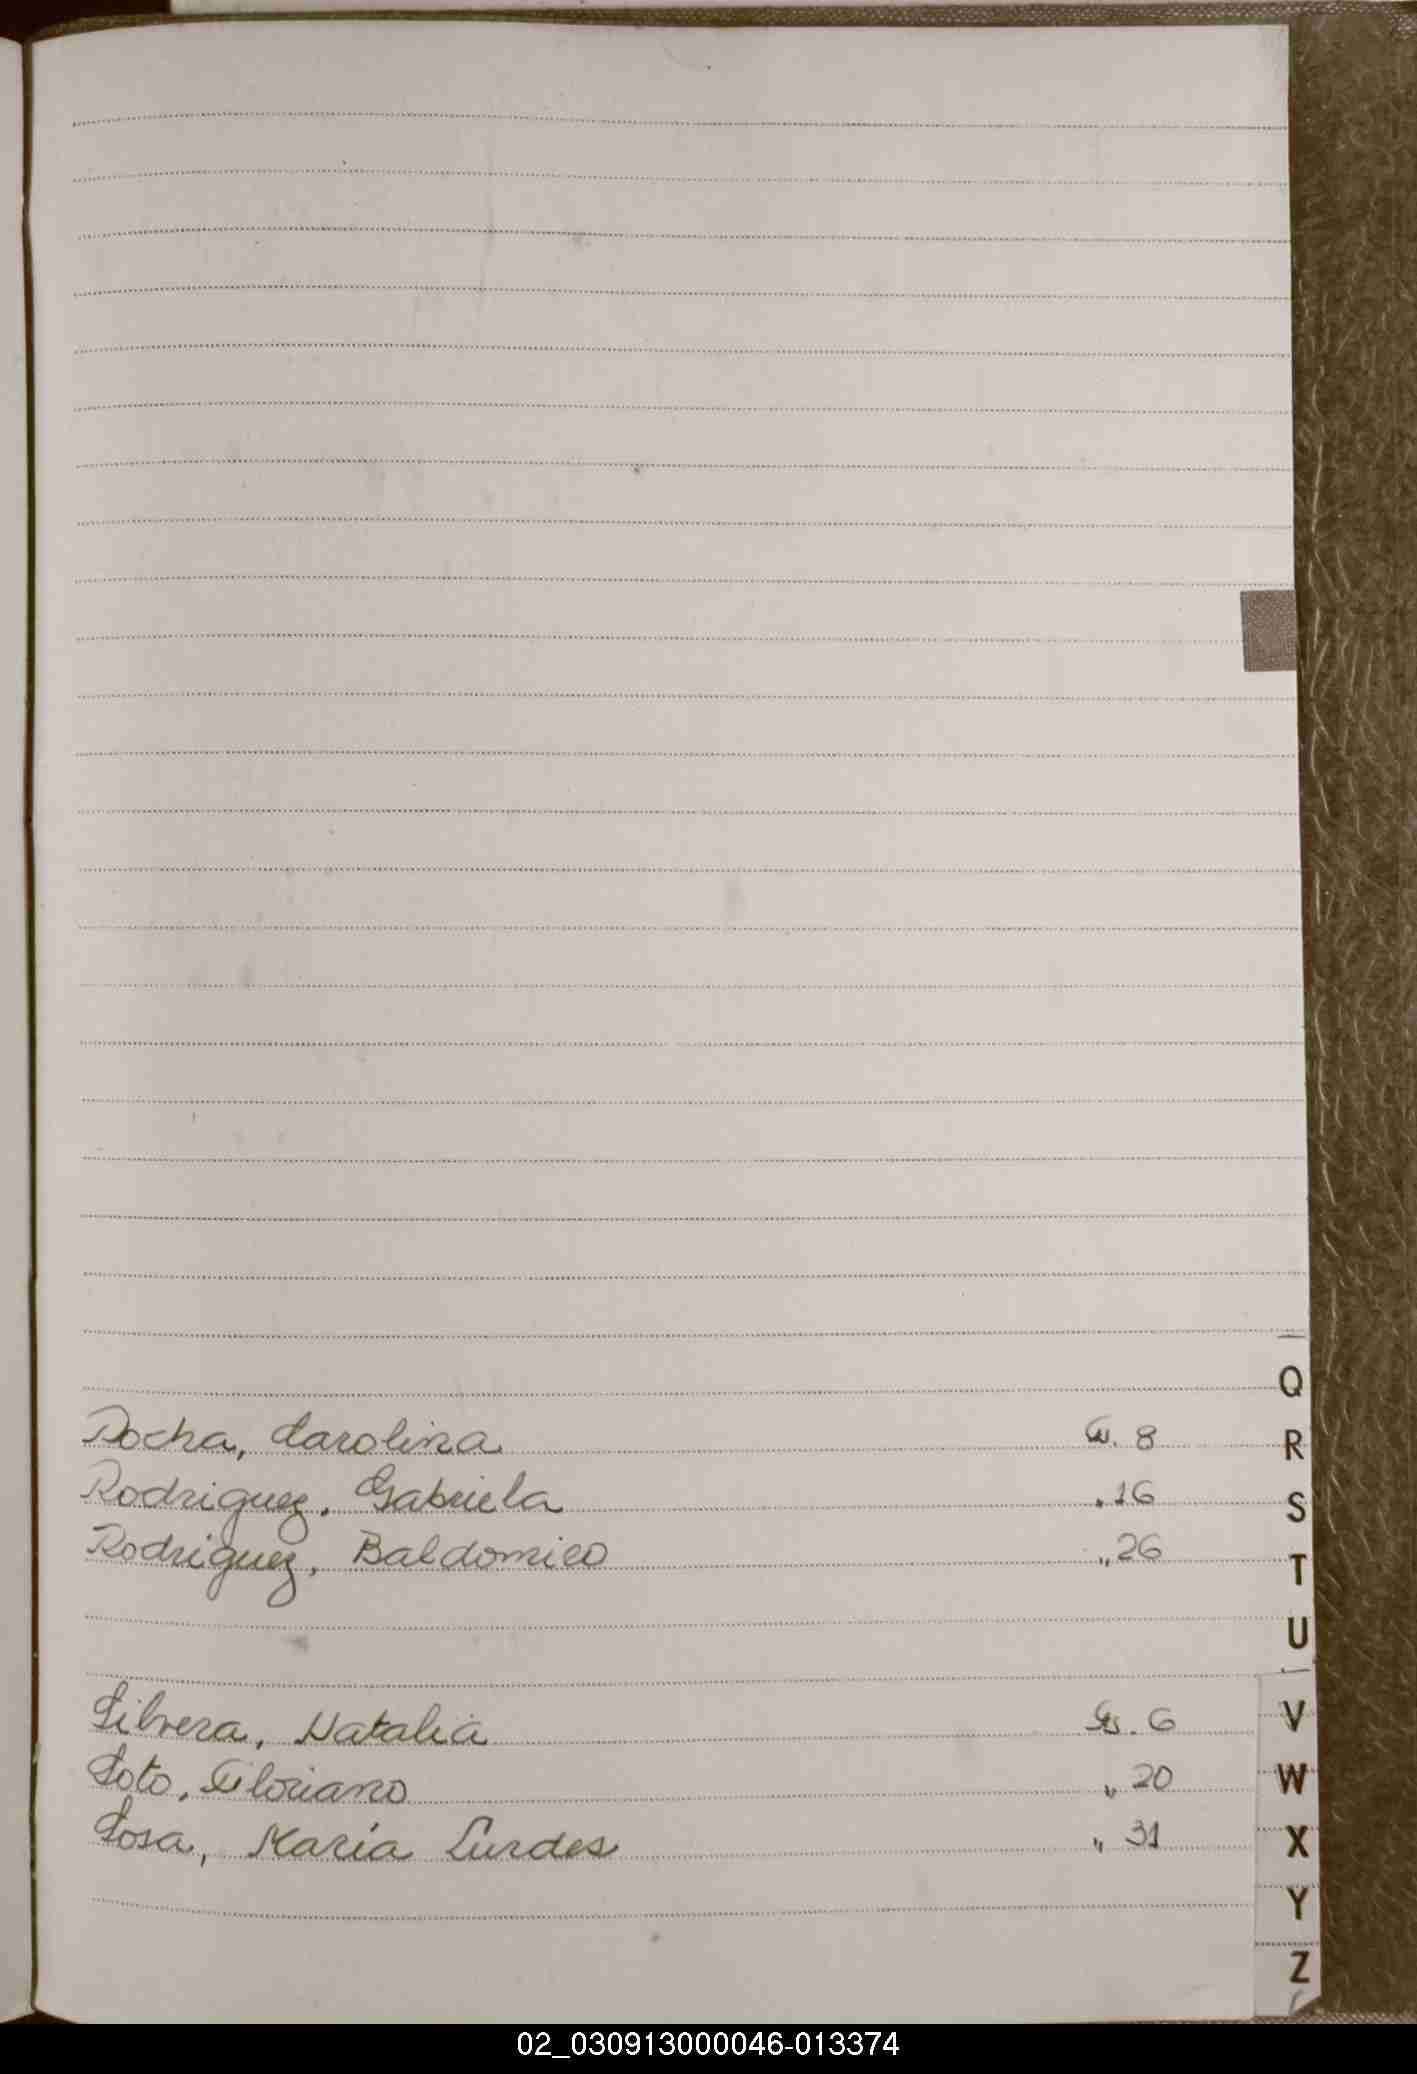 Q
Rocha, Carolina 8
R
Rodriguez, Gabriela " 16
S
Rodriguez, Baldomero " 26
T
U
Silvera, Natalia 6
V
Soto, Floriano " 20
W
Sosa, Maria Lurdes " 31
X
Y
Z
02_030913000046-013374